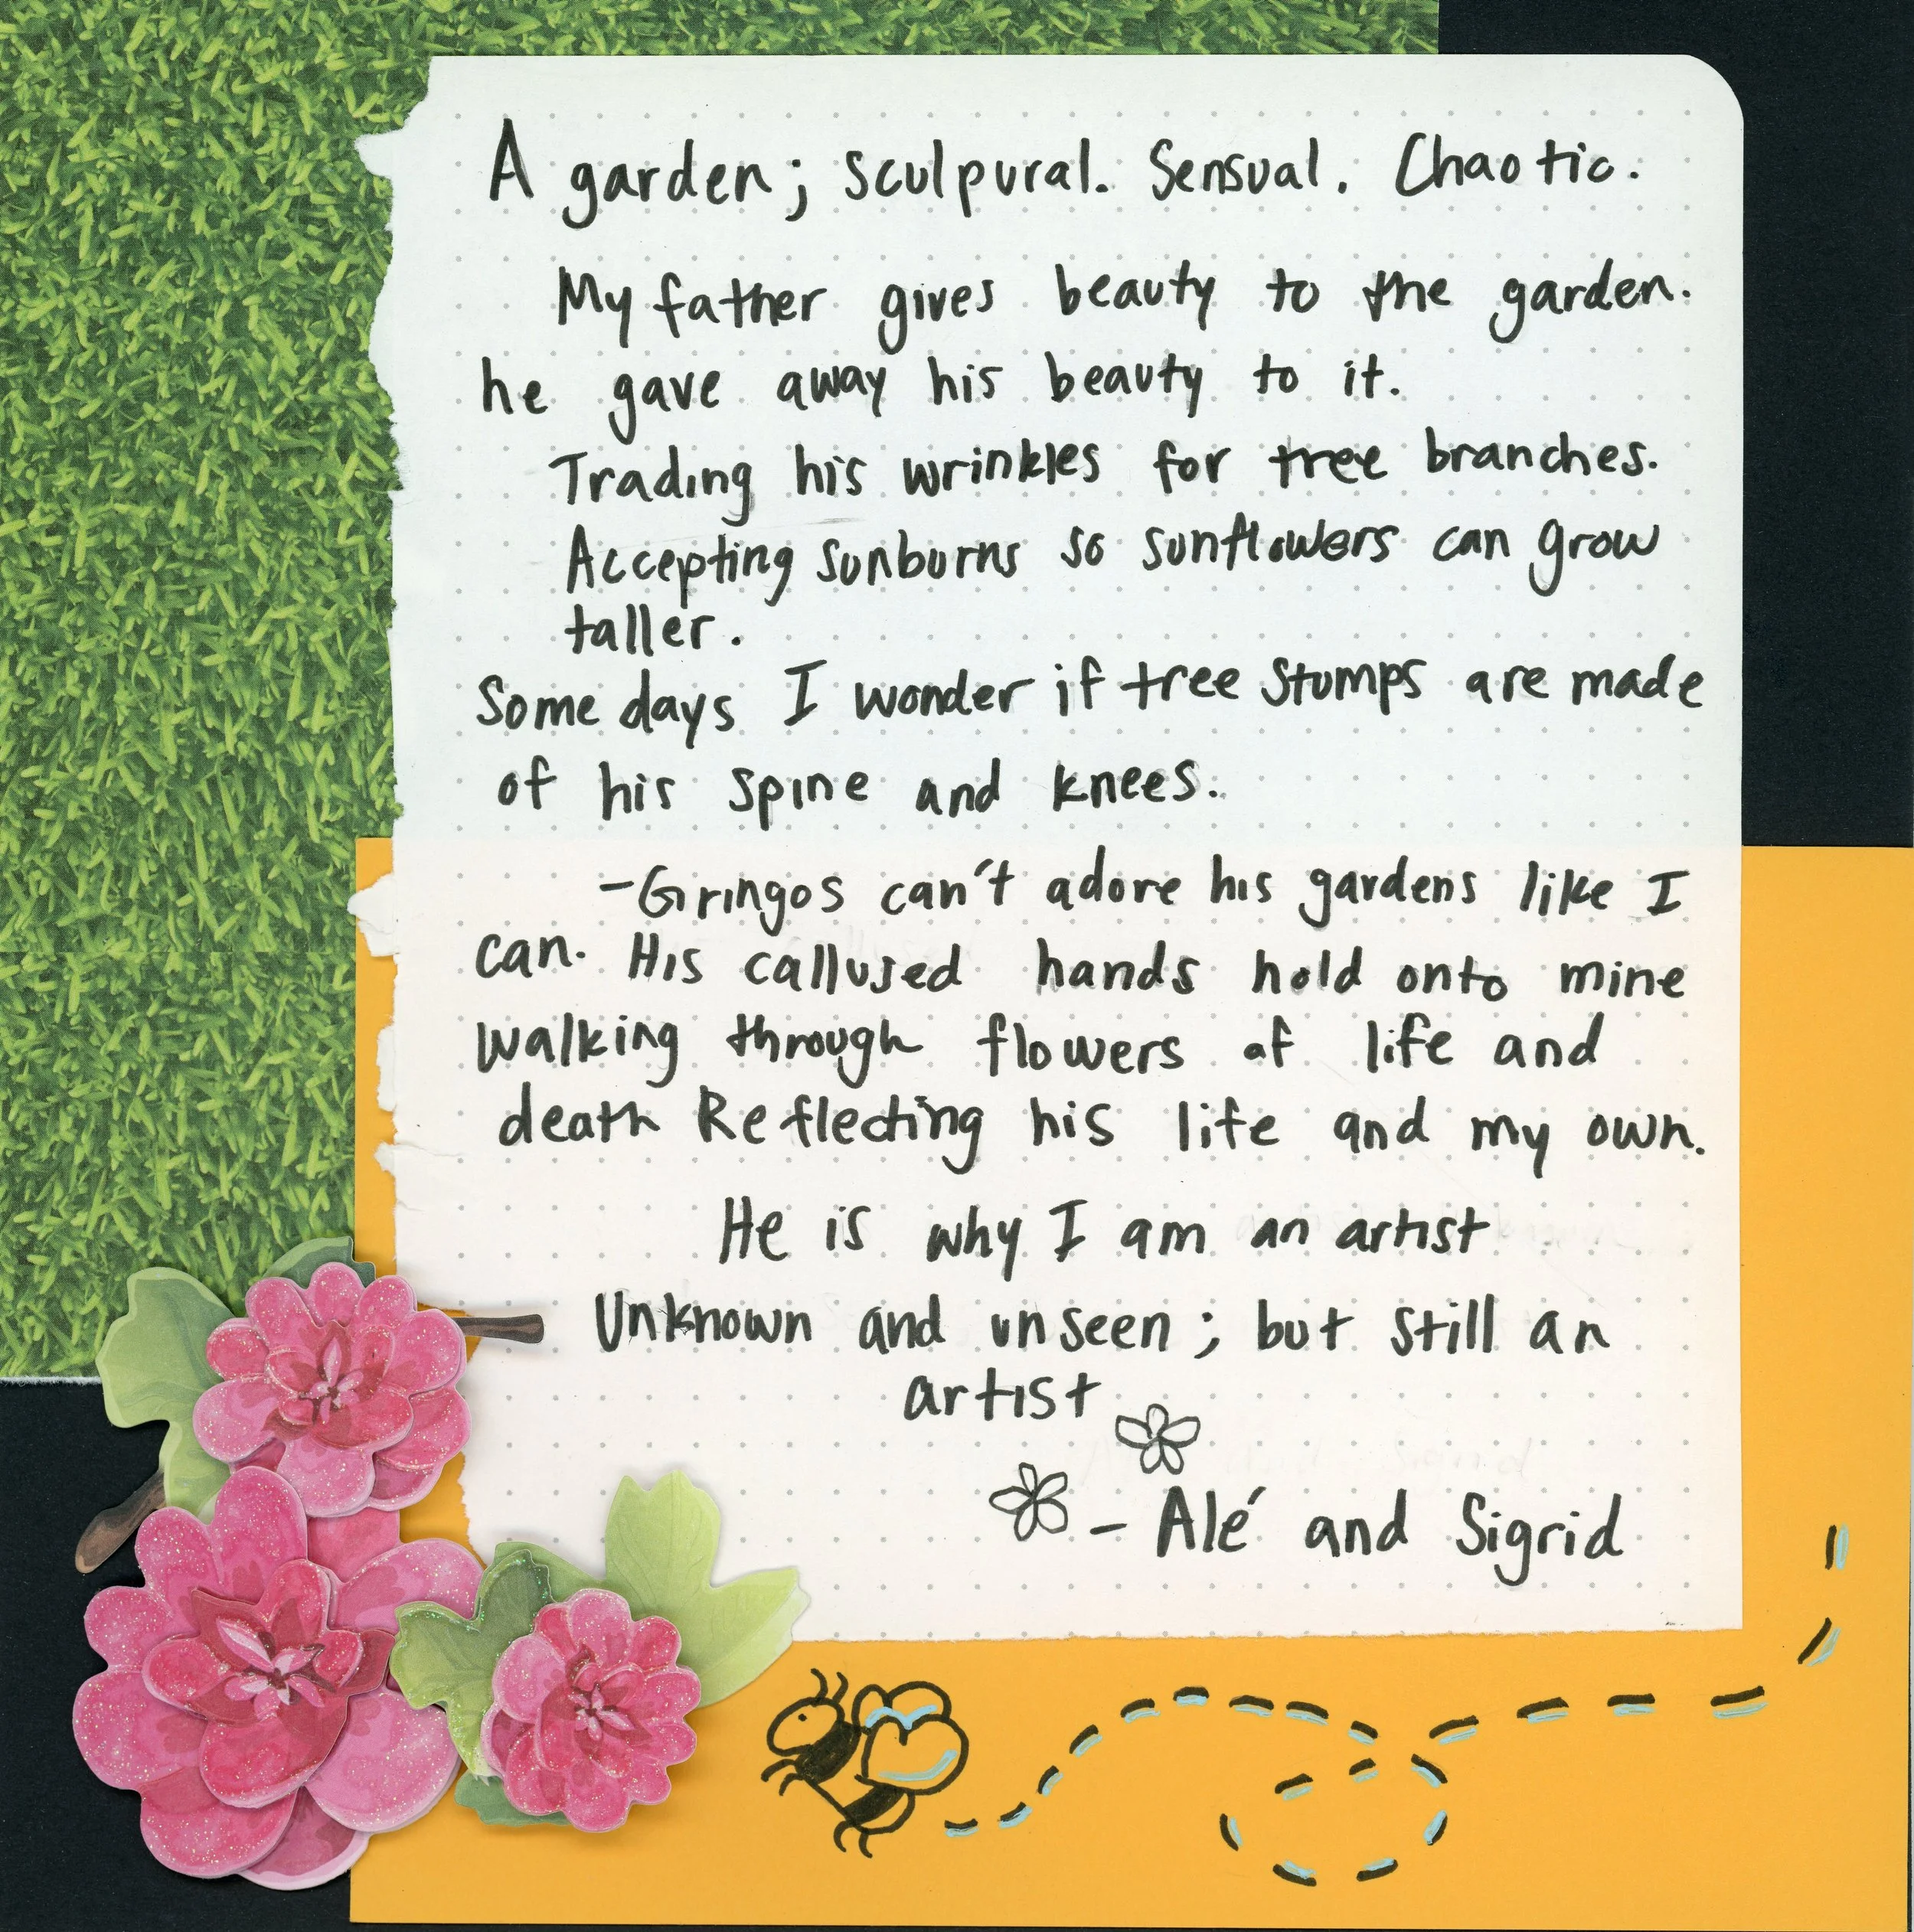 A garden; sculpural. Sensual. Chaotic.
My father gives beauty to the garden.
he gave away his beauty to it.
Trading his wrinkles for tree branches.
Accepting sunburns so sunflowers can grow
taller.
Some days I wonder if tree stumps are made
of his spine and knees.
-Gringos can't adore his gardens like I
can. His callused hands hold onto mine
walking through flowers of life and
death Reflecting his life and my own.
He is why I am an artist
Unknown and unseen; but still an
artist
- Alé and Sigrid